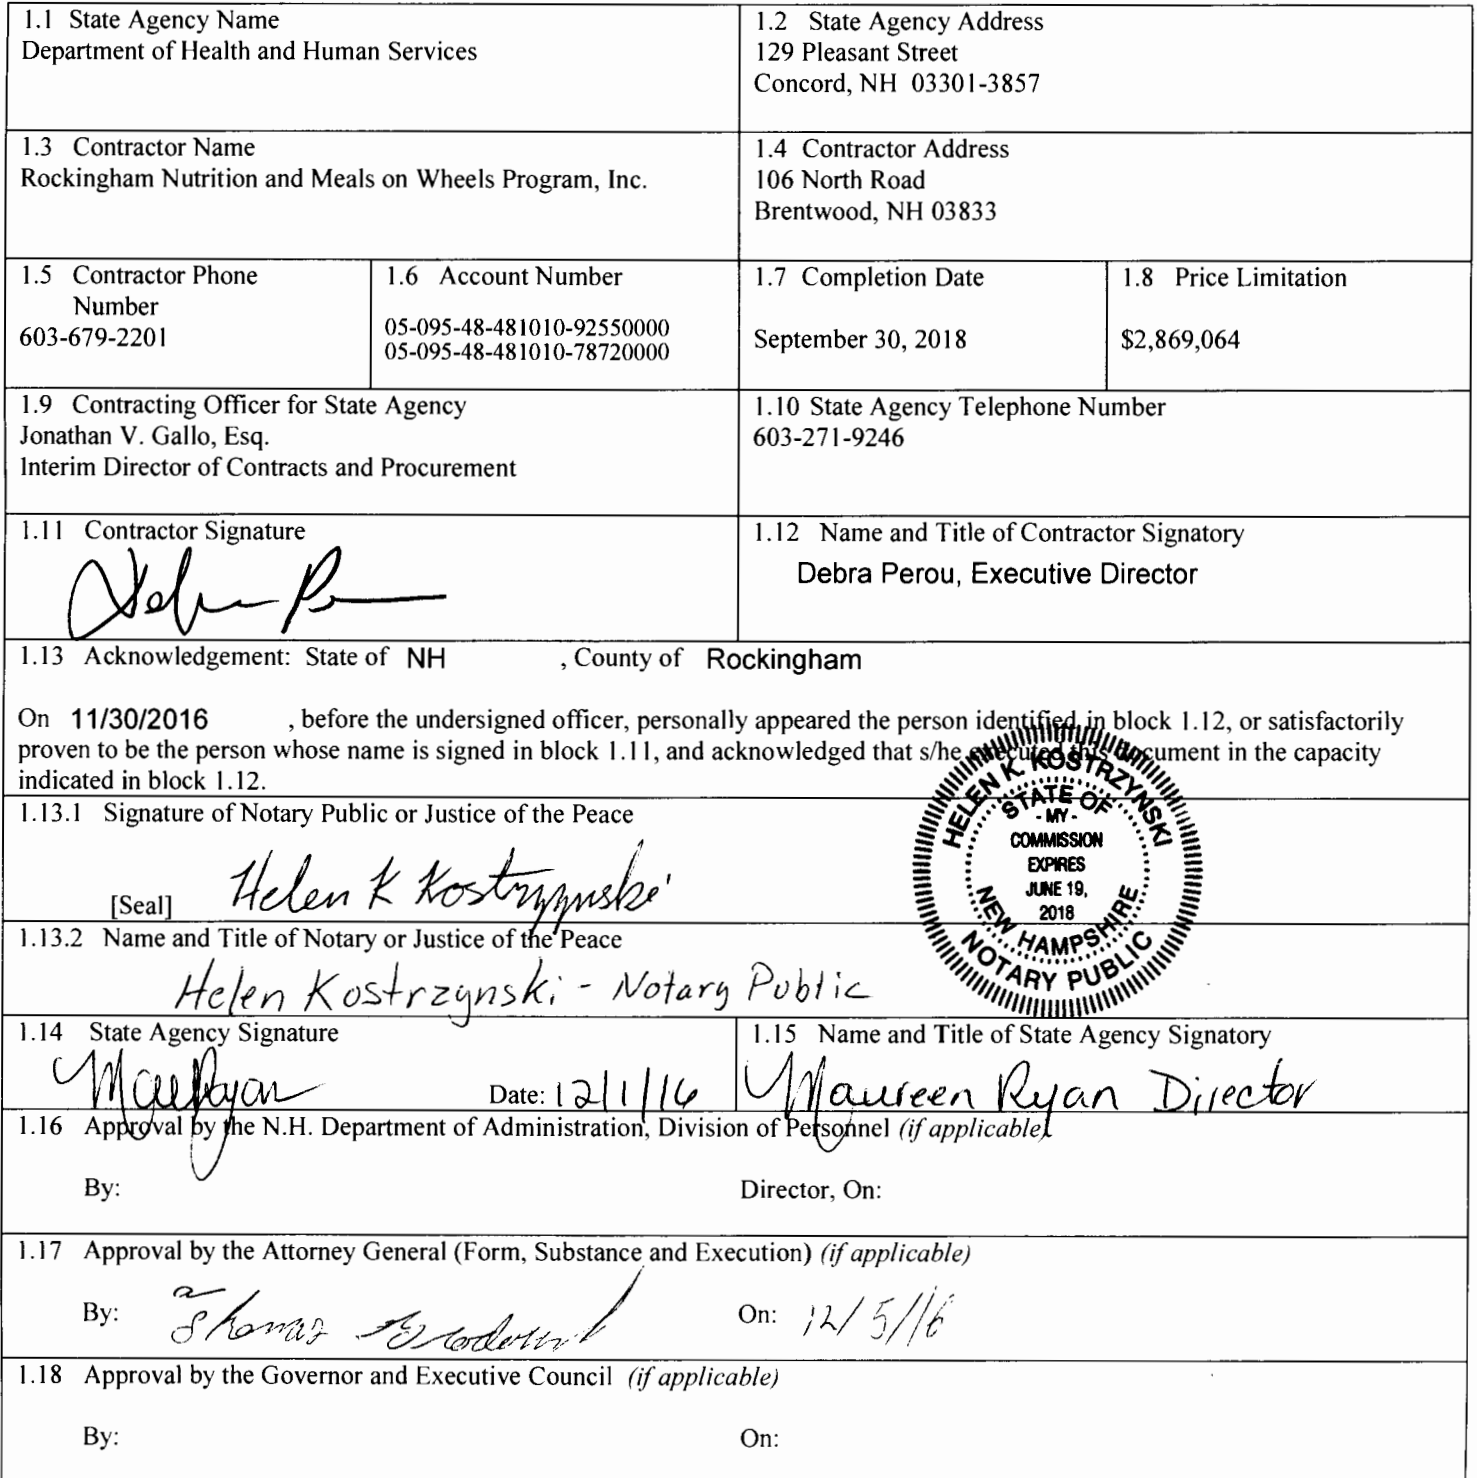 1.1 State Agency Name
Department of Health and Human Services
1.2 State Agency Address
129 Pleasant Street
Concord, NH 03301-3857
1.3 Contractor Name
Rockingham Nutrition and Meals on Wheels Program, Inc.
1.4 Contractor Address
106 North Road
Brentwood, NH 03833
1.5 Contractor Phone
Number
603-679-2201
1.6 Account Number
05-095-48-481010-92550000
05-095-48-481010-78720000
1.7 Completion Date
September 30, 2018
1.8 Price Limitation
$2,869,064
1.9 Contracting Officer for State Agency
Jonathan V. Gallo, Esq.
Interim Director of Contracts and Procurement
1.10 State Agency Telephone Number
603-271-9246
1.11 Contractor Signature
1.12 Name and Title of Contractor Signatory
Debra Perou, Executive Director
1.13 Acknowledgement: State of NH , County of Rockingham
On 11/30/2016 , before the undersigned officer, personally appeared the person identified in block 1.12, or satisfactorily
proven to be the person whose name is signed in block 1.11, and acknowledged that s/he executed this document in the capacity
indicated in block 1.12.
HELEN K. KOSTRZYNSKI
STATE OF
- MY -
COMMISSION
EXPIRES
JUNE 19,
2018
NEW HAMPSHIRE
NOTARY PUBLIC
1.13.1 Signature of Notary Public or Justice of the Peace
[Seal] Helen K Kostrzynski
1.13.2 Name and Title of Notary or Justice of the Peace
Helen Kostrzynski - Notary Public
1.14 State Agency Signature
Date: 12/1/16
1.15 Name and Title of State Agency Signatory
Maureen Ryan Director
1.16 Approval by the N.H. Department of Administration, Division of Personnel (if applicable)
By: Director, On:
1.17 Approval by the Attorney General (Form, Substance and Execution) (if applicable)
By: On: 12/5/16
1.18 Approval by the Governor and Executive Council (if applicable)
By: On: